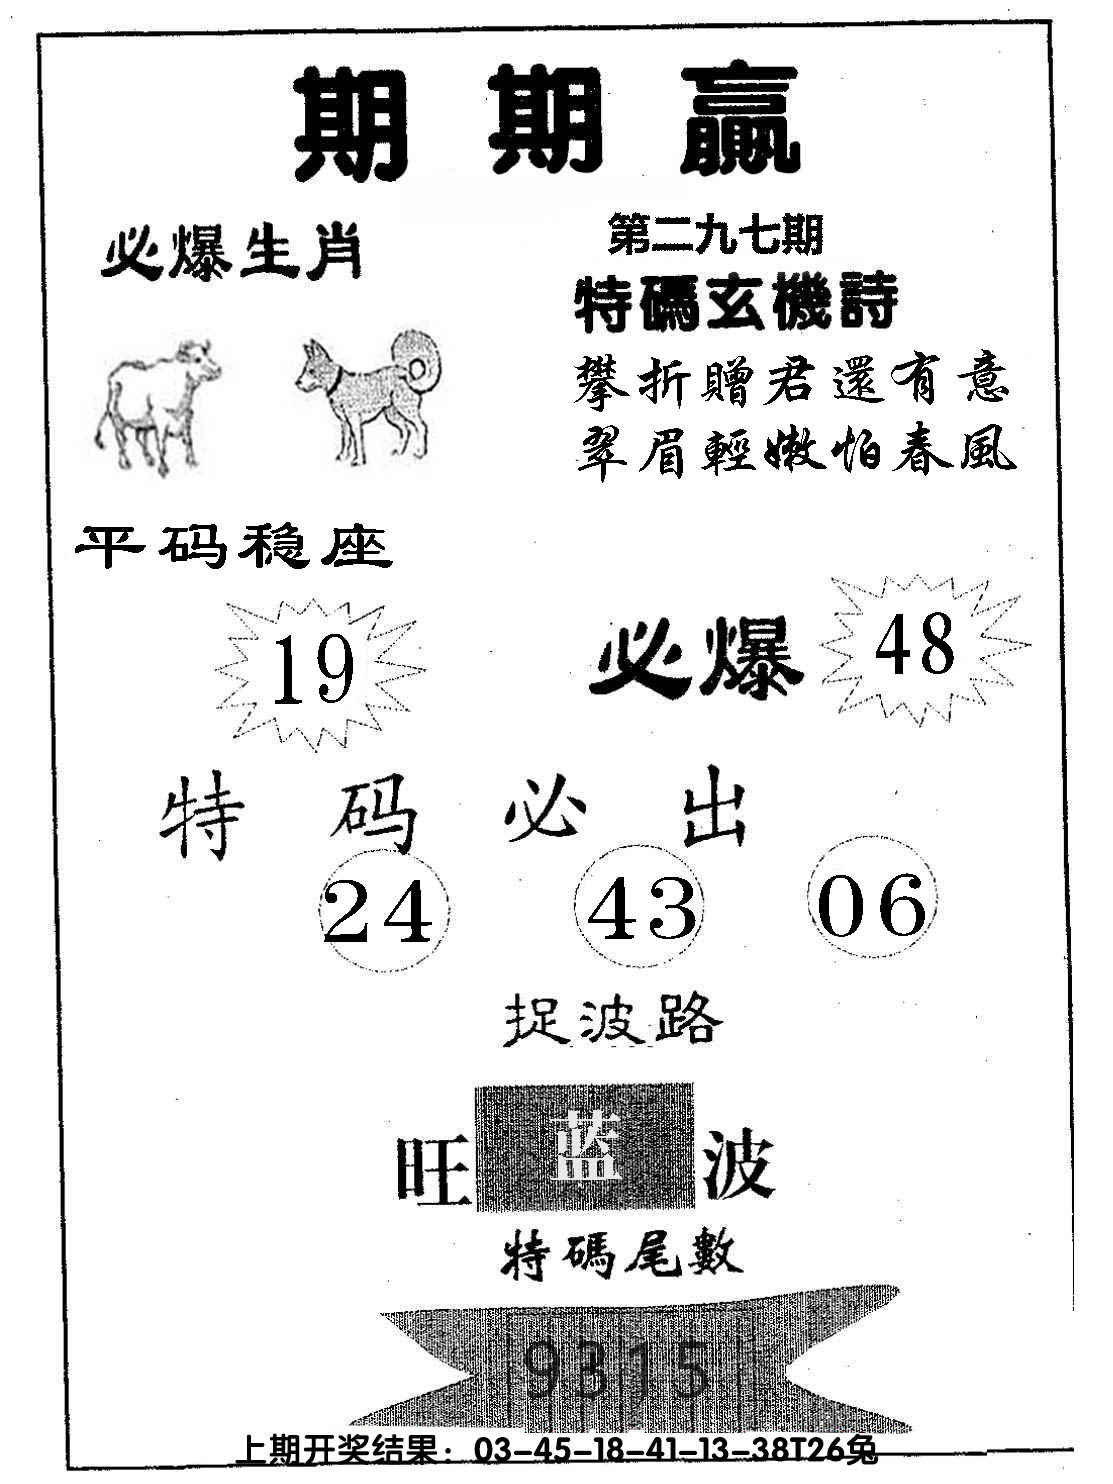 期期赢
必爆生肖
第二九七期
特碼玄機詩
攀折贈君還有意
翠眉輕嫩怕春風
平码稳座
19
必爆
48
特码必出
24 43 06
捉波路
旺蓝波
特碼尾數
9315
上期开奖结果：03-45-18-41-13-38T26兔